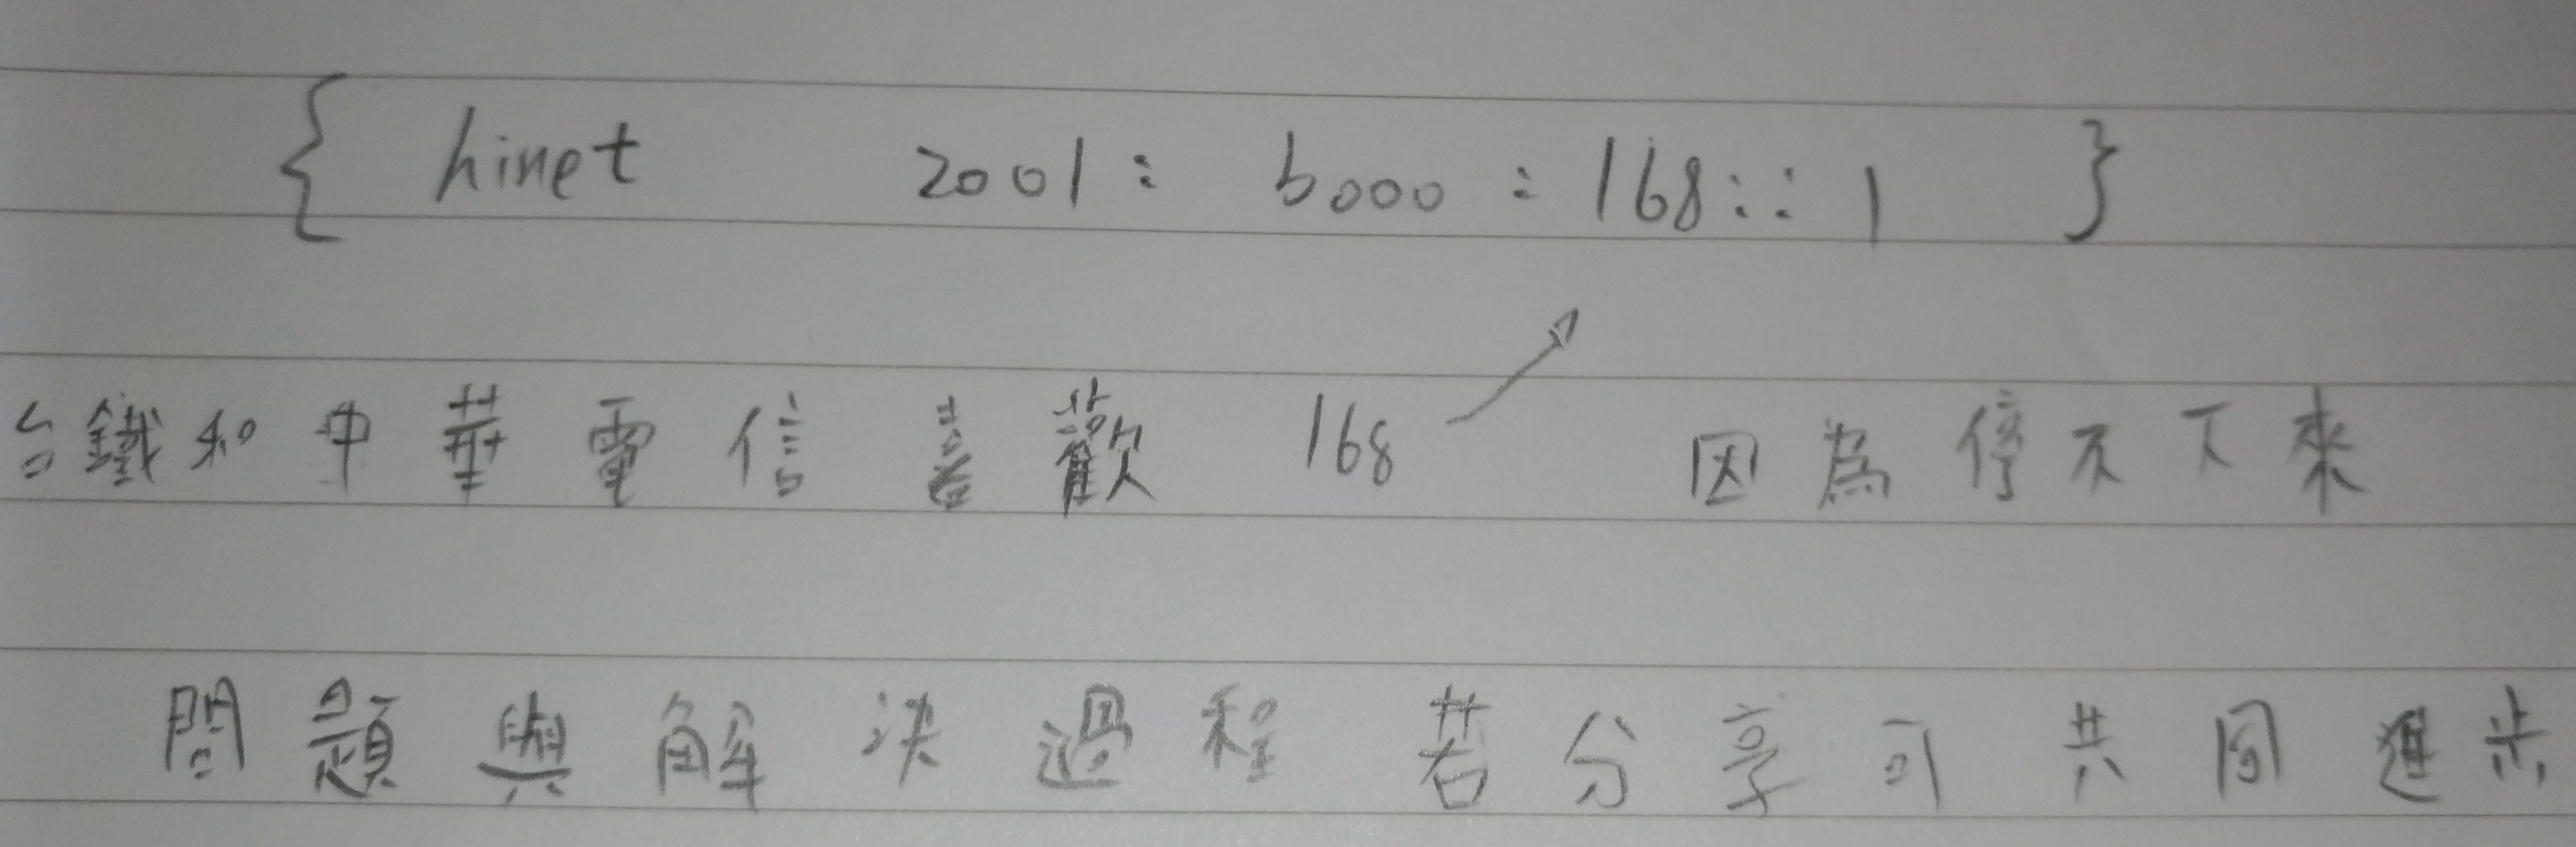 { hinet 2001 : b000 : 168 :: 1 }
台鐵和中華電信喜歡 168 ↗ 因為停不下來
問題與解決過程若分享可共同進步